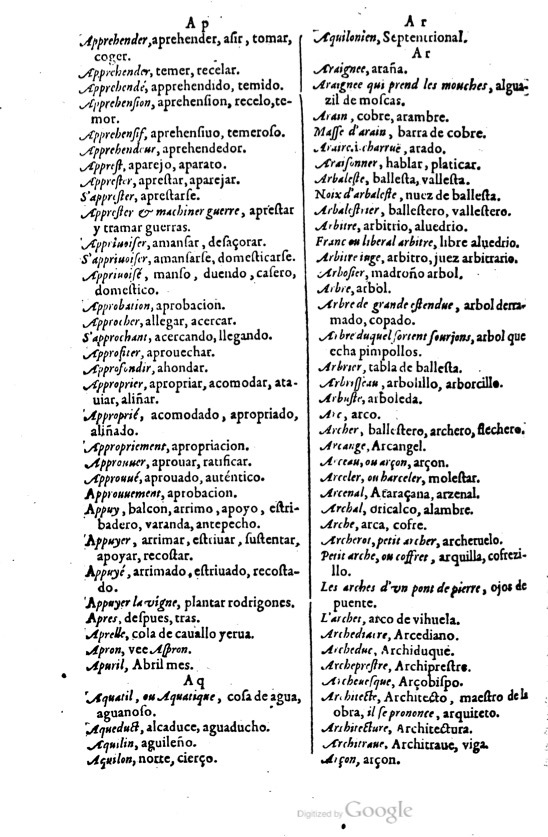 A p
Apprehender, aprehender, asir, tomar,
coger.
Apprehender, temer, recelar.
Apprehendé, apprehendido, temido.
Apprehension, aprehension, recelo, te-
mor.
Apprehensif, aprehensiuo, temeroso.
Apprehendeur, aprehendedor.
Apprest, aparejo, aparato.
Apprester, aprestar, aparejar.
S'apprester, aprestarse.
Apprester & machiner guerre, aprestar
y tramar guerras.
Appriuoiser, amansar, desaçorar.
S'appriuoiser, amansarse, domesticarse.
Appriuoisé, manso, duendo, casero,
domestico.
Approbation, aprobacion.
Approcher, allegar, acercar.
S'approchant, acercando, llegando.
Approfiter, aprouechar.
Approfondir, ahondar.
Approprier, apropriar, acomodar, ata-
uiar, aliñar.
Approprié, acomodado, apropriado,
aliñado.
Appropriement, apropriacion.
Approuuer, aprouar, ratificar.
Approuué, aprouado, auténtico.
Approuuement, aprobacion.
Appuy, balcon, arrimo, apoyo, estri-
badero, varanda, antepecho.
Appuyer, arrimar, estriuar, sustentar,
apoyar, recostar.
Appuyé, arrimado, estriuado, recosta-
do.
Appuyer la vigne, plantar rodrigones.
Apres, despues, tras.
Aprelle, cola de cauallo yerua.
Apron, vee Aspron.
Apuril, Abril mes.
A q
Aquatil, ou Aquatique, cosa de agua,
aguanoso.
Aqueduct, alcaduce, aguaducho.
Aquilin, aguileño.
Aquilon, norte, cierço.
A r
Aquilonien, Septentrional.
A r
Araignee, araña.
Araignee qui prend les mouches, algua-
zil de moscas.
Arain, cobre, arambre.
Masse d'arain, barra de cobre.
Araire.i.charruë, arado.
Araisonner, hablar, platicar.
Arbaleste, ballesta, vallesta.
Noix d'arbaleste, nuez de ballesta.
Arbalestrier, ballestero, vallestero.
Arbitre, arbitrio, aluedrio.
Franc ou liberal arbitre, libre aluedrio.
Arbitre iuge, arbitro, juez arbitrario.
Arbosier, madroño arbol.
Arbre, arbol.
Arbre de grande estendue, arbol derra-
mado, copado.
Arbre duquel sortent sourjons, arbol que
echa pimpollos.
Arbrier, tabla de ballesta.
Arbrisseau, arbolillo, arborcillo.
Arbuste, arboleda.
Arc, arco.
Archer, ballestero, archero, flechero.
Arcange, Arcangel.
Arceau, ou arçon, arçon.
Arceler, ou harceler, molestar.
Arcenal, Ataraçana, arzenal.
Archal, oricalco, alambre.
Arche, arca, cofre.
Archerot, petit archer, archeruelo.
Petit arche, ou coffret, arquilla, cofrezi-
llo.
Les arches d'vn pont de pierre, ojos de
puente.
L'archet, arco de vihuela.
Archediacre, Arcediano.
Archeduc, Archiduqué.
Archeprestre, Archiprestre.
Archeuesque, Arçobispo.
Architecte, Architecto, maestro de la
obra, il se prononce, arquiteto.
Architecture, Architectura.
Architraue, Architraue, viga.
Arçon, arçon.
Digitized by Google